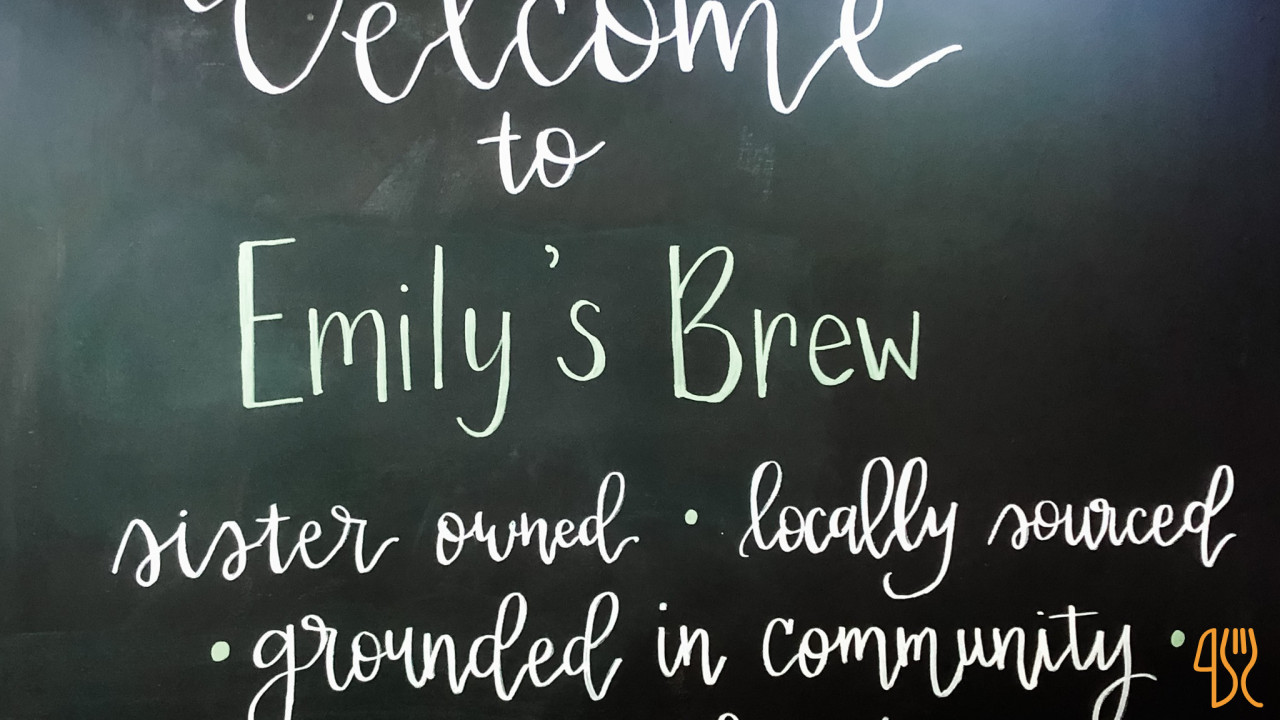 Welcome
to
Emily's Brew
sister owned • locally sourced
• grounded in community •